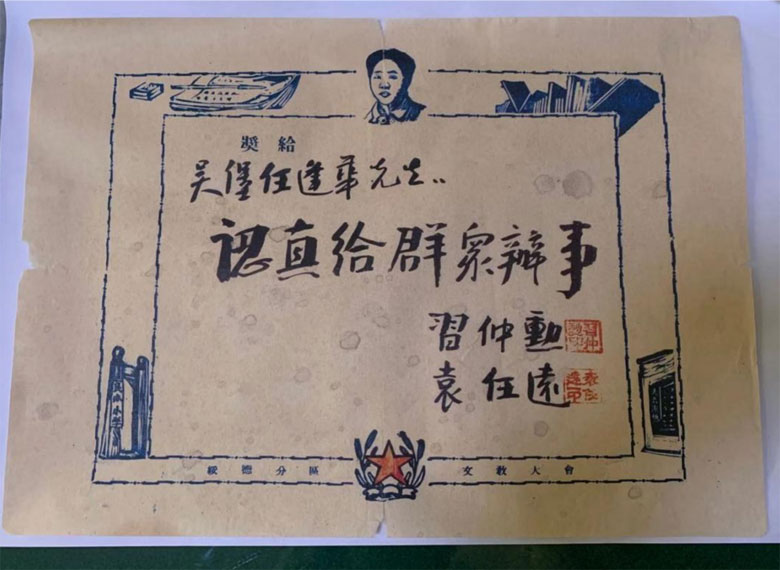 奬給
吴堡任逢華先生：
認真給群衆辦事
習仲勳
袁任遠
綏德分區
文教大會